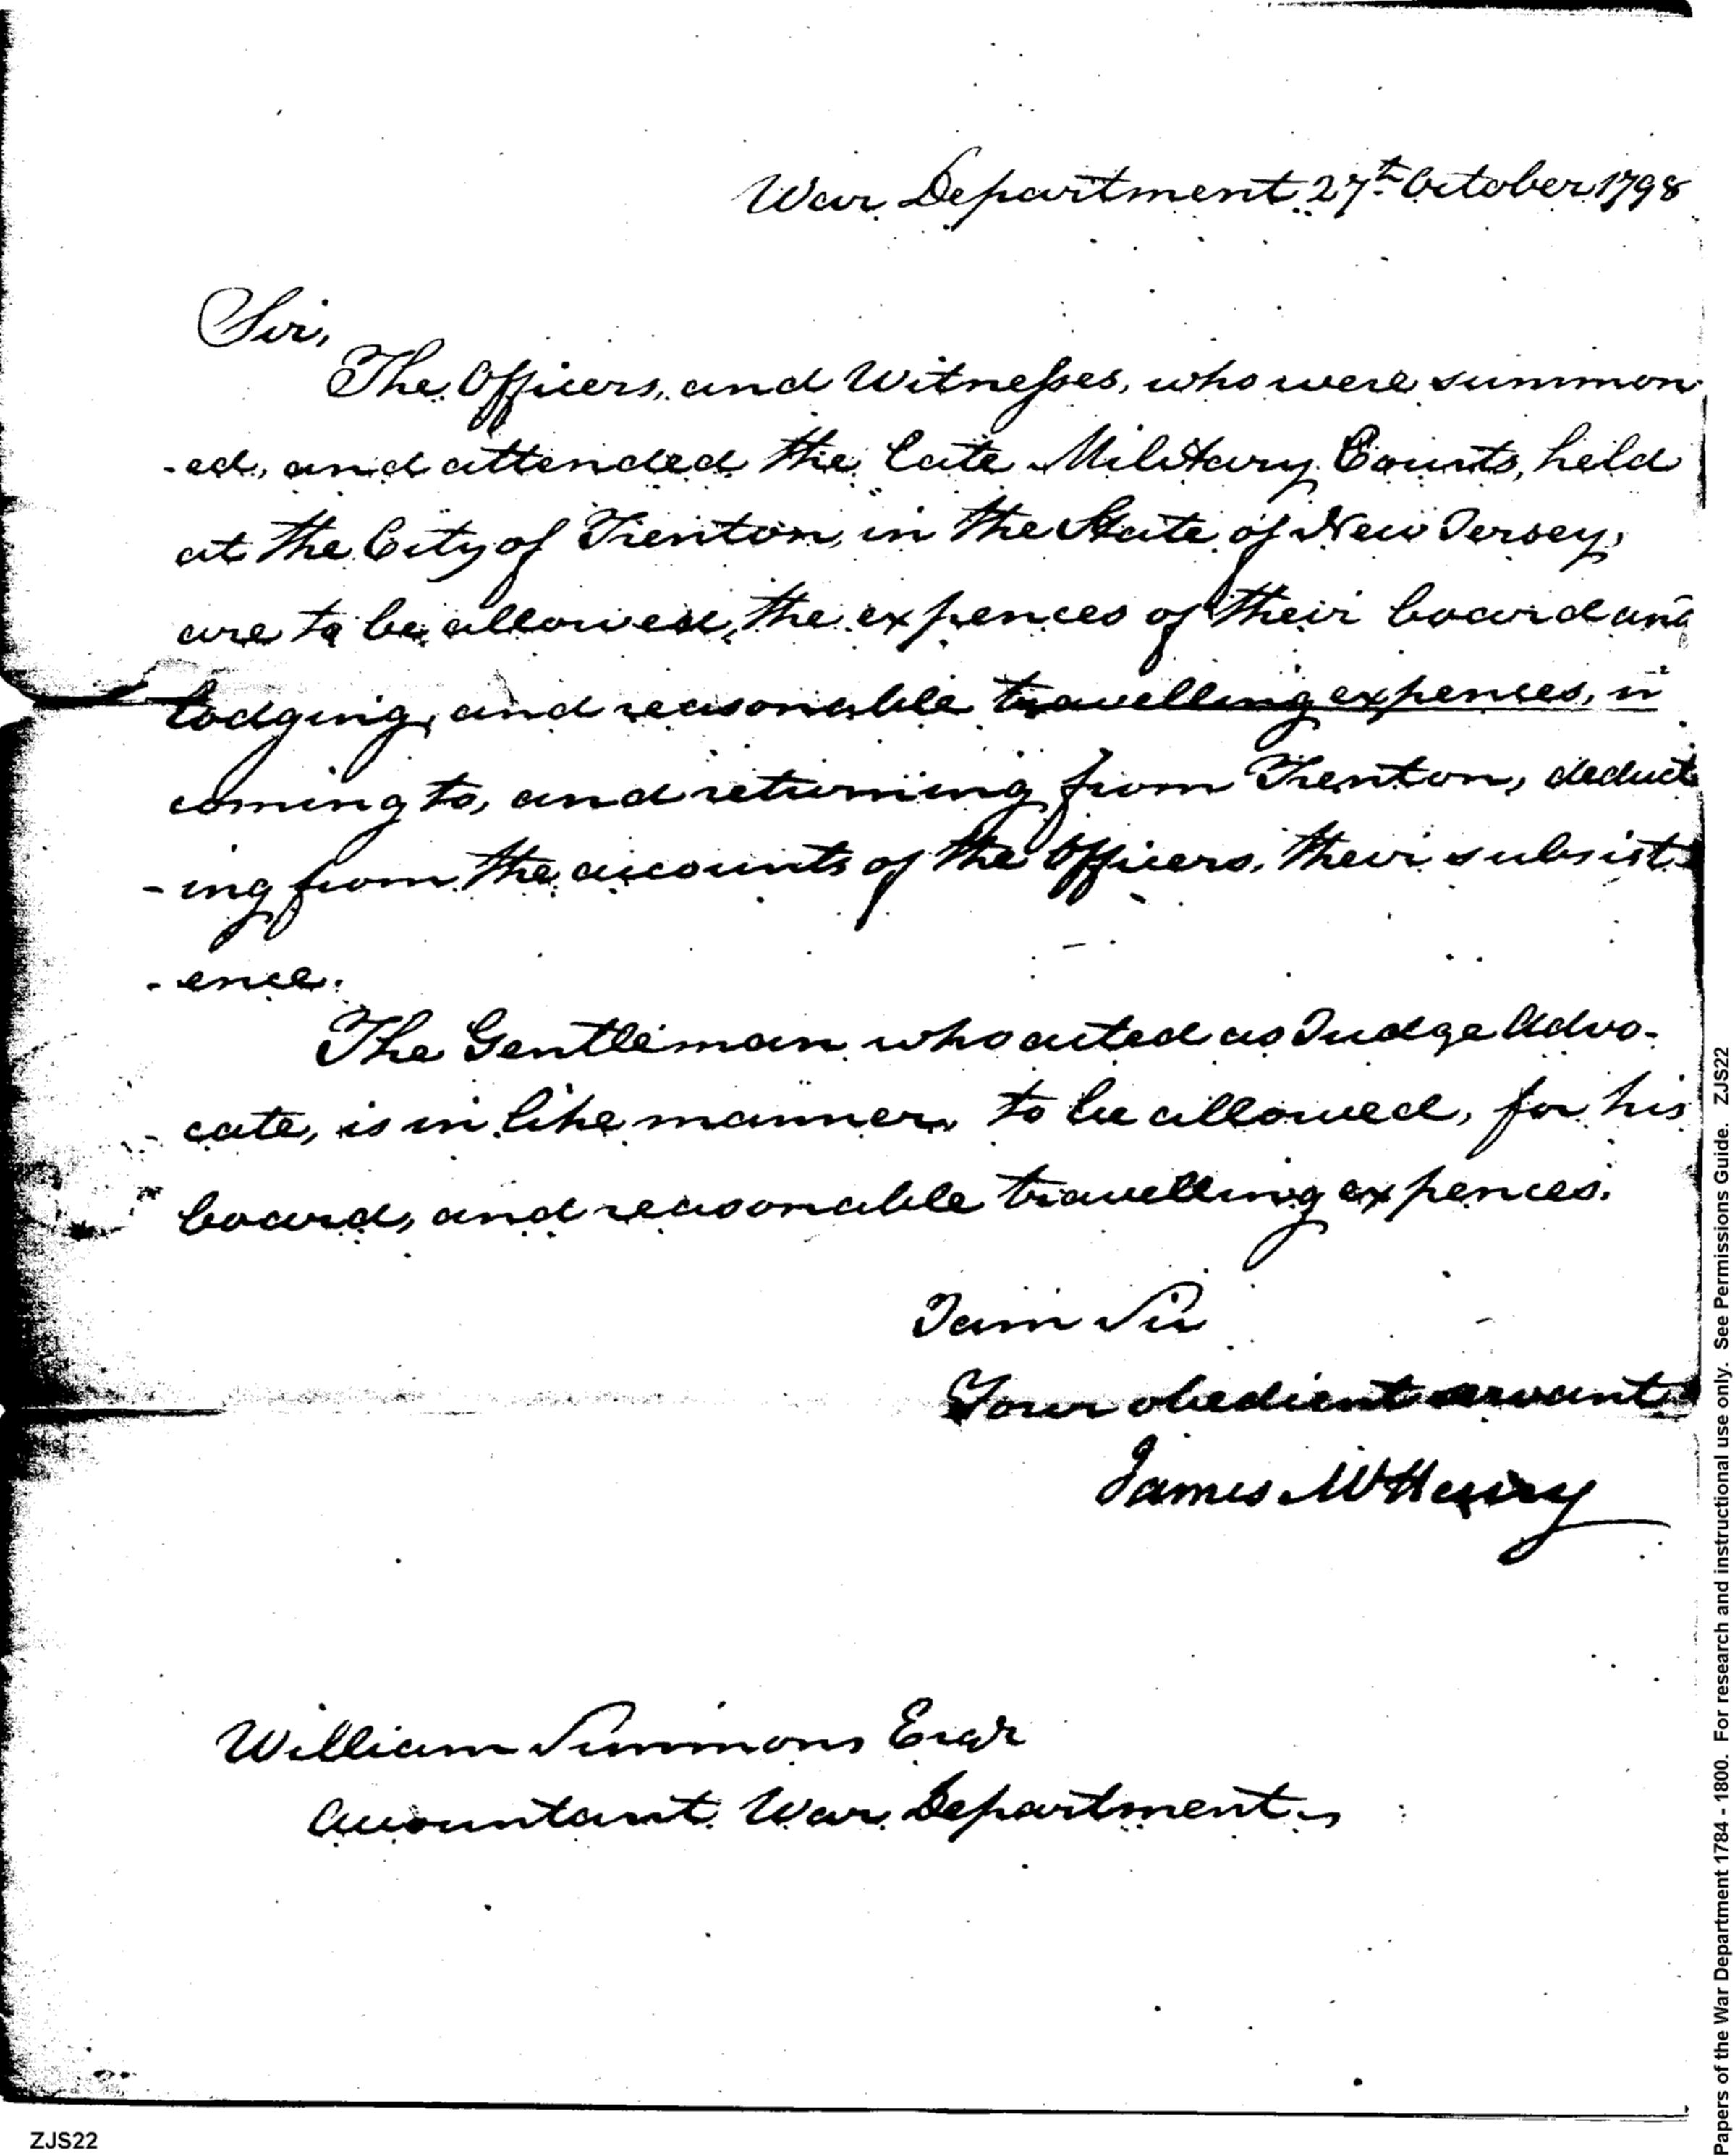 War Department 27th October 1798
Sir,
The Officers, and Witnesses, who were summon
-ed, and attended the late Military Courts, held
at the City of Trenton, in the State of New Jersey,
are to be allowed, the expences of their board and
lodging, and reasonable travelling expences, in
coming to, and returning from Trenton, deduct
-ing from the accounts of the Officers, their subsist
-ence.
The Gentleman who acted as Judge Advo-
cate, is in like manner to be allowed, for his
board, and reasonable travelling expences.
I am Sir
Your obedient servant
James McHenry
William Simmons Esqr
Accountant War Department
Papers of the War Department 1784 - 1800. For research and instructional use only. See Permissions Guide. ZJS22
ZJS22